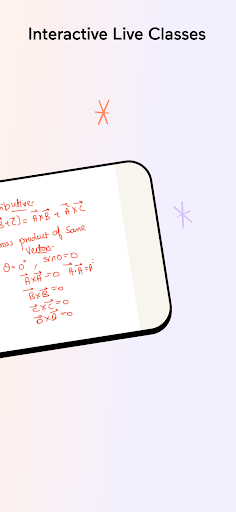 Interactive Live Classes
ibutive
B+C) = A×B + A×C
oss product of Same
Vectors
θ=0°, sin0=0
A×A=0 A·A=A²
B×B=0
C×C=0
D×D=0